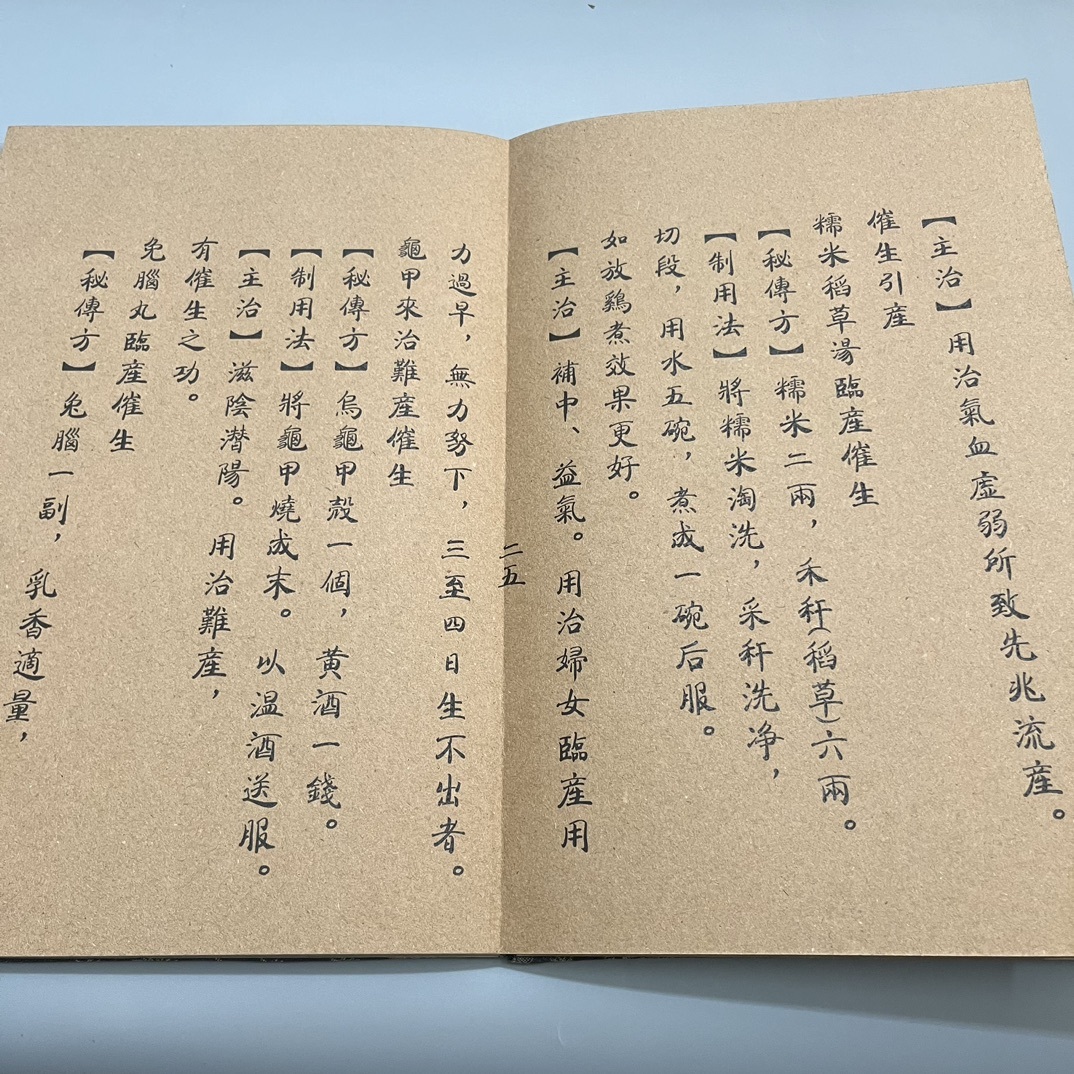 【主治】用治氣血虛弱所致先兆流産。
催生引産
糯米稻草湯臨産催生
【秘傳方】糯米二兩，禾秆（稻草）六兩。
【制用法】將糯米淘洗，采秆洗净，
切段，用水五碗，煮成一碗后服。
如放鷄煮效果更好。
【主治】補中、益氣。用治婦女臨産用
二五
力過早，無力努下，三至四日生不出者。
龜甲來治難産催生
【秘傳方】烏龜甲殼一個，黄酒一錢。
【制用法】將龜甲燒成末。以温酒送服。
【主治】滋陰潜陽。用治難産，
有催生之功。
兔腦丸臨産催生
【秘傳方】兔腦一副，乳香適量，